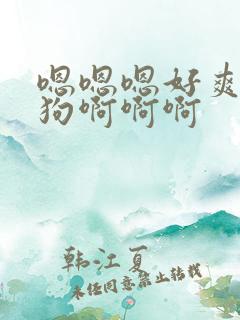 嗯嗯嗯好爽
狗啊啊啊
韩江夏
未经同意禁止转载